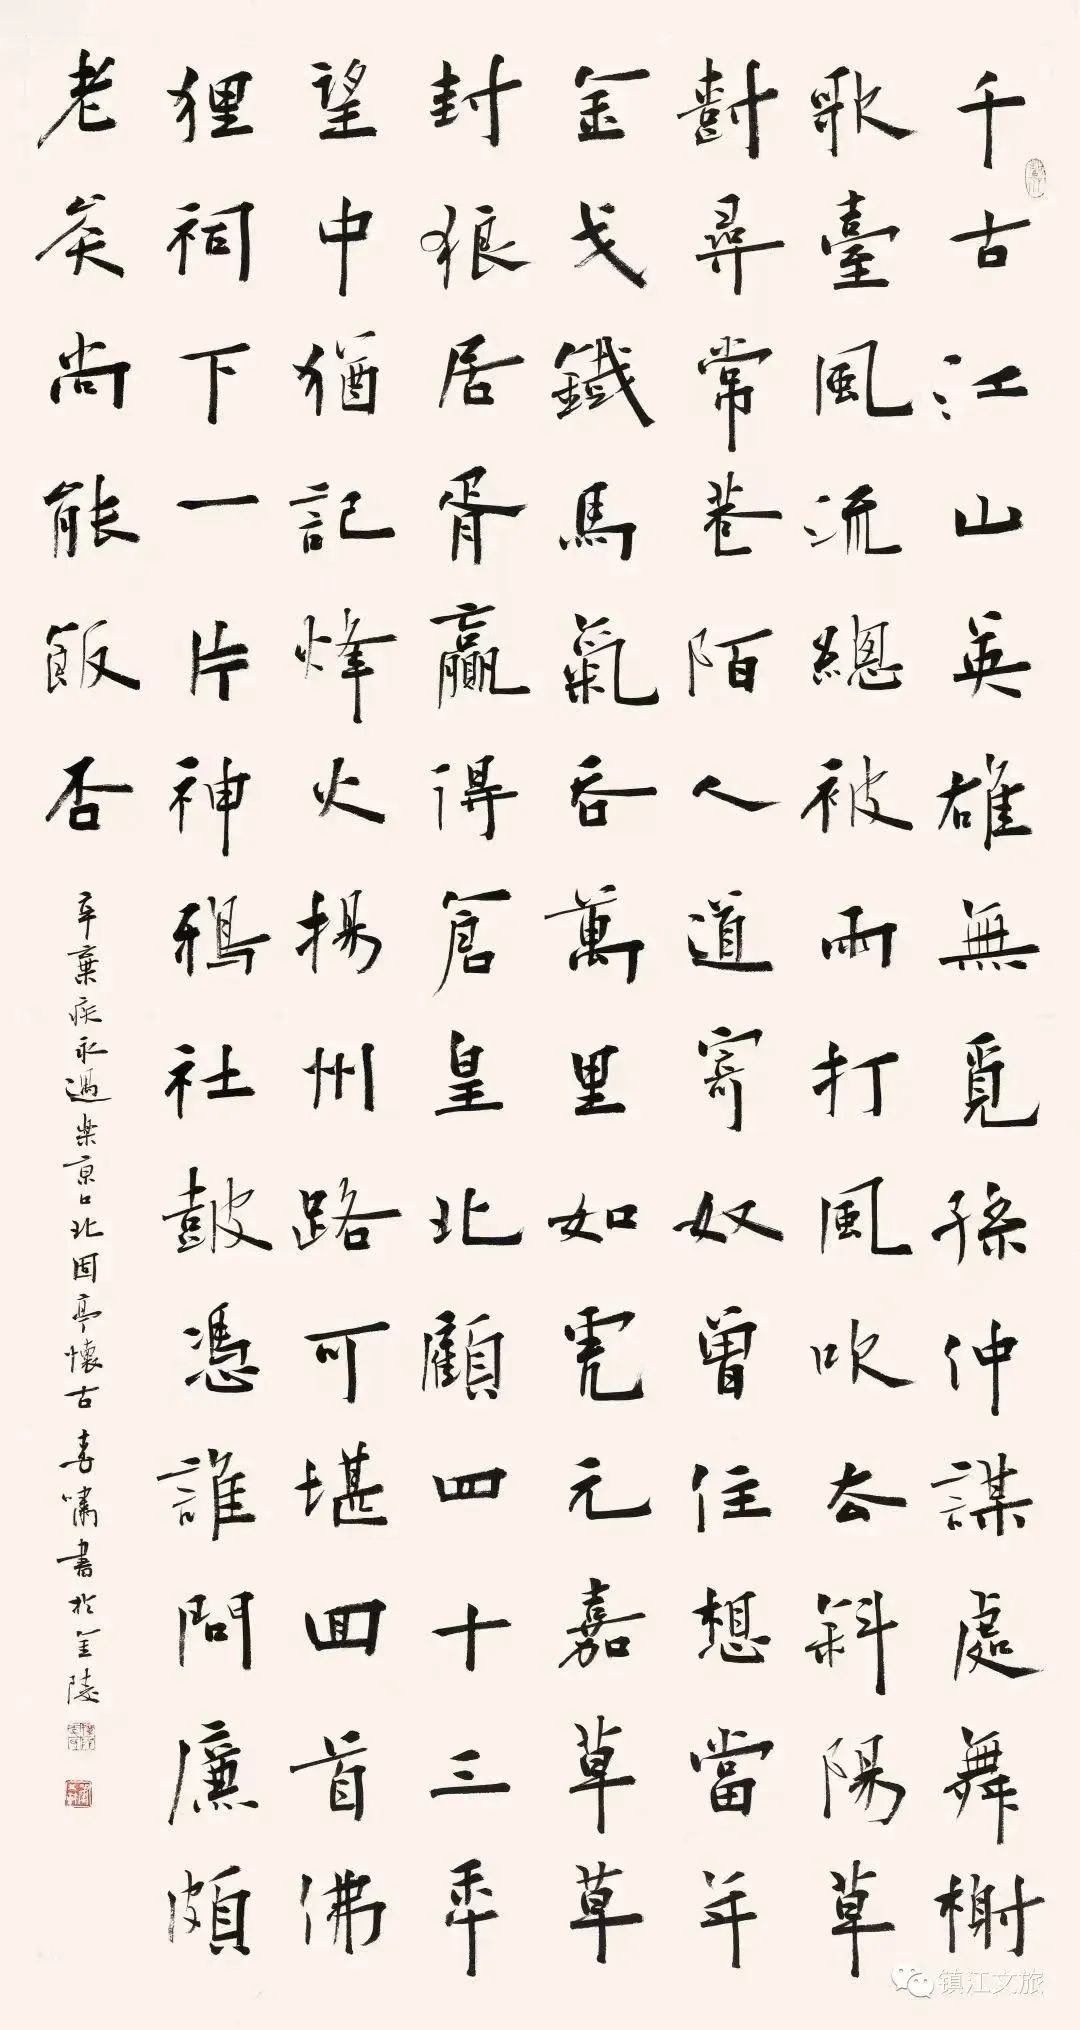 千古江山英雄無覓孫仲謀處舞榭
歌臺風流總被雨打風吹去斜陽草
樹尋常巷陌人道寄奴曾住想當年
金戈鐵馬氣吞萬里如虎元嘉草草
封狼居胥贏得倉皇北顧四十三年
望中猶記烽火揚州路可堪回首佛
狸祠下一片神鴉社鼓憑誰問廉頗
老矣尚能飯否
辛棄疾永遇樂京口北固亭懷古 嘯書於金陵
镇江文旅